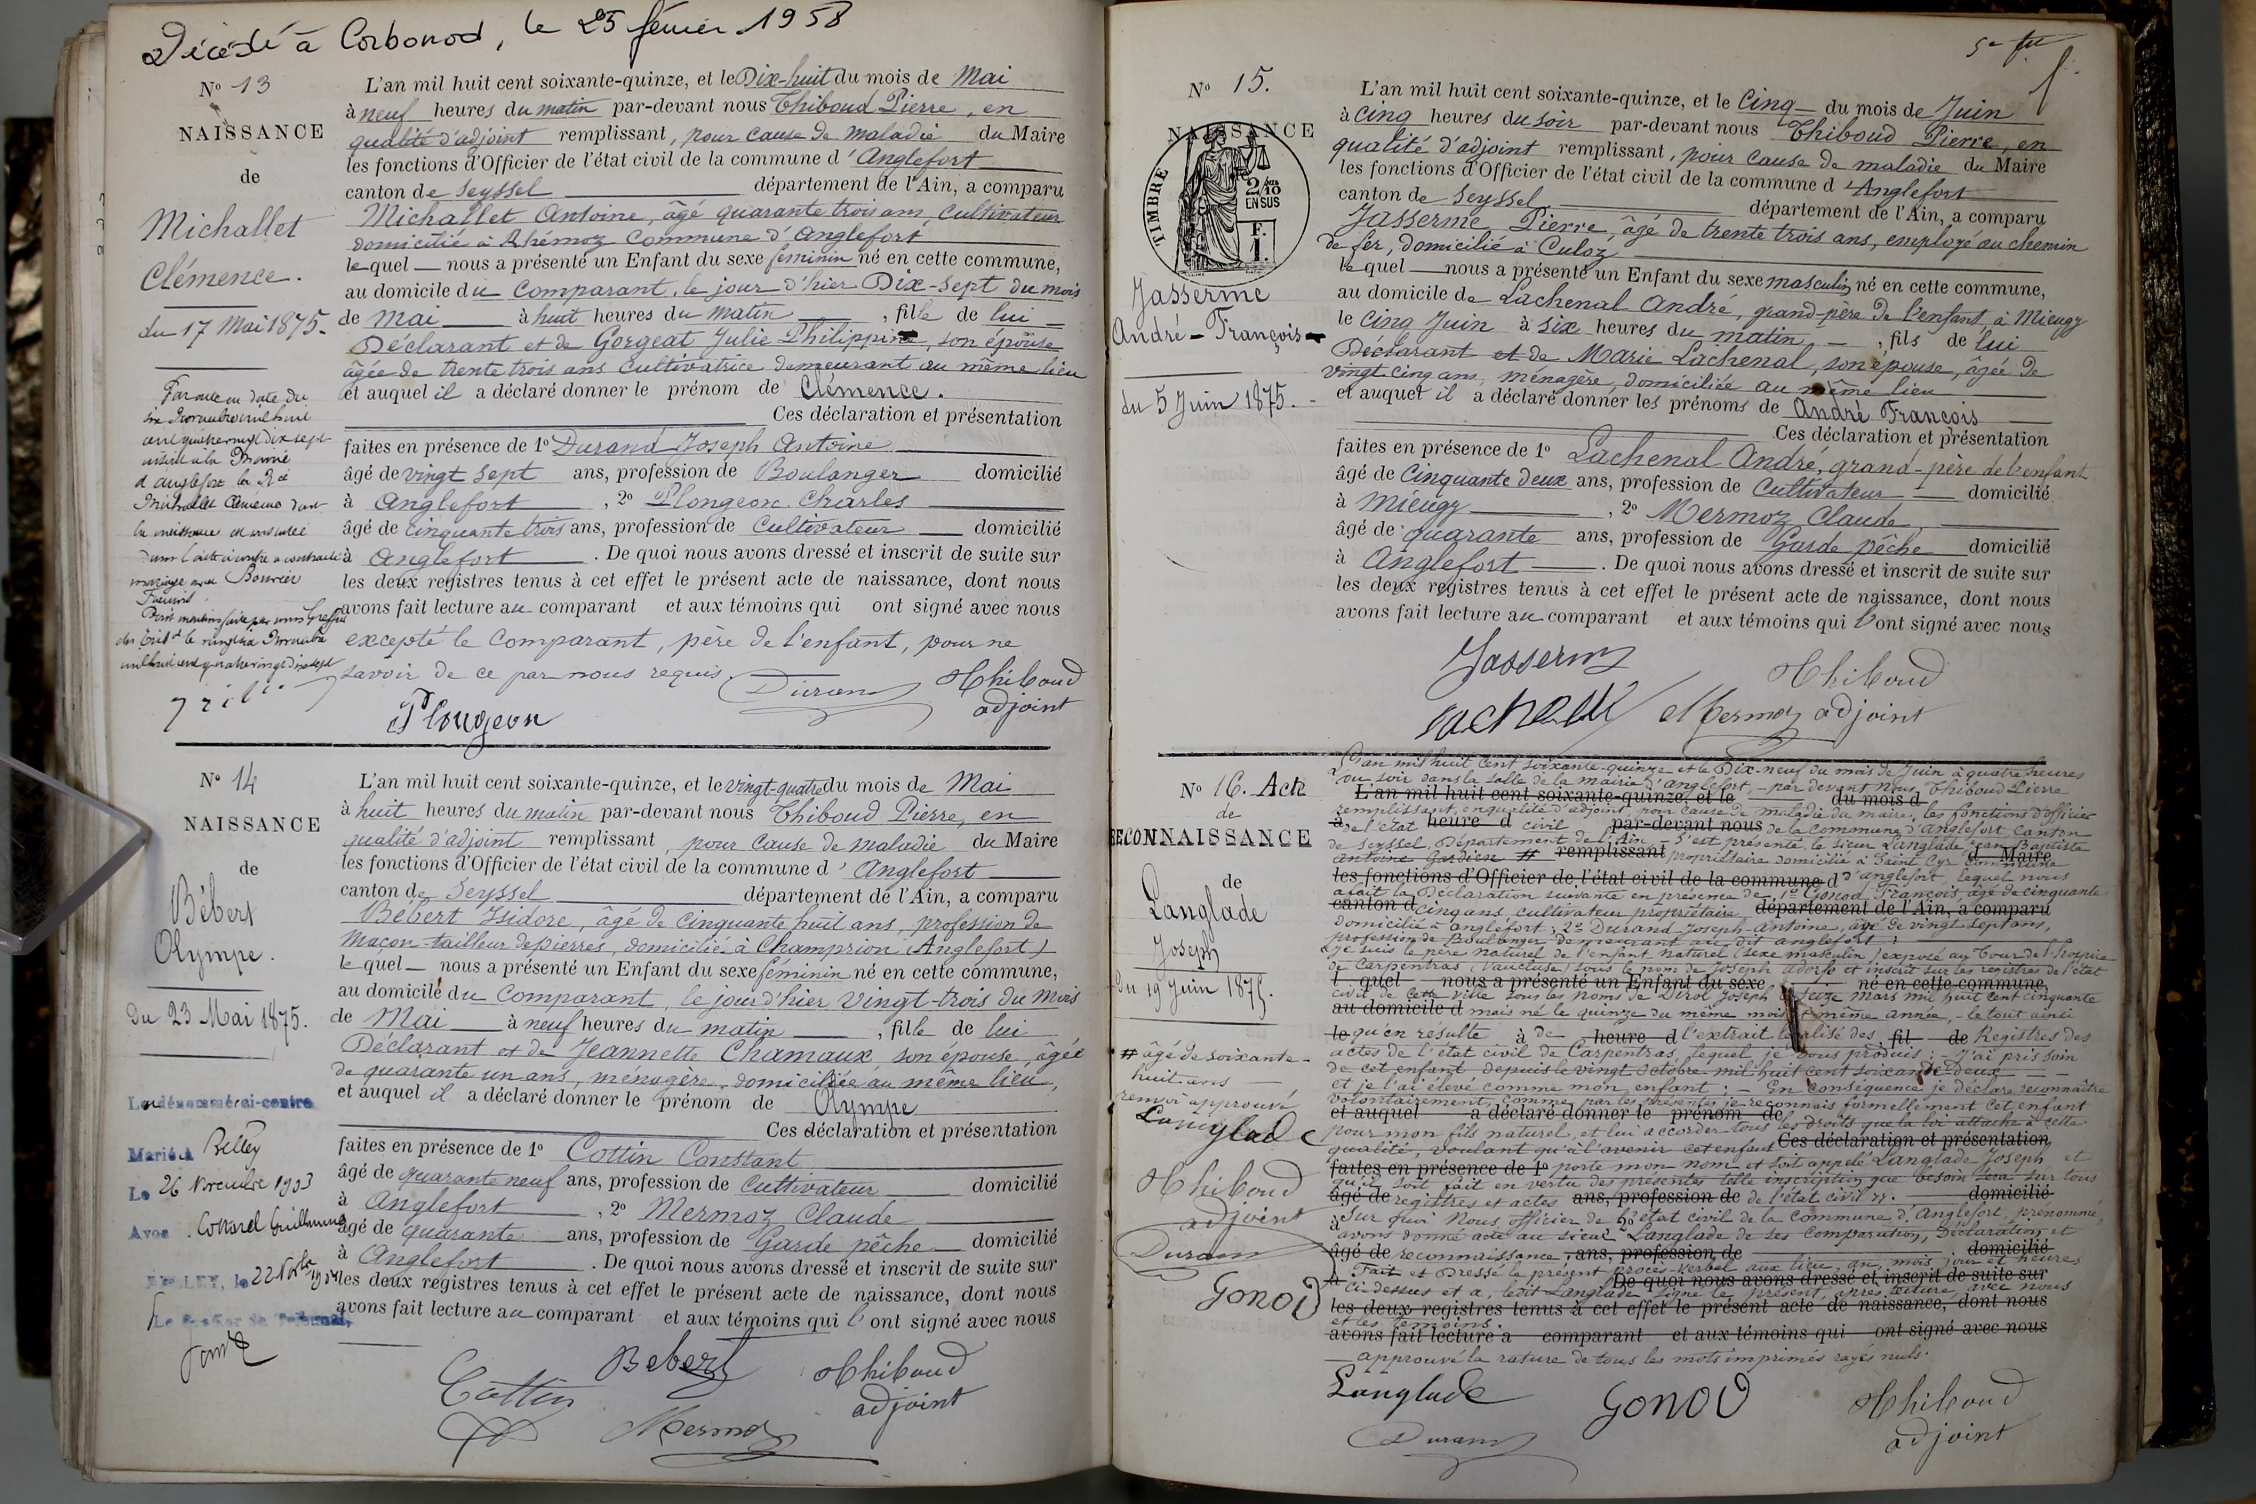 Décédé à Corbonod, le 25 février 1958
No 13
NAISSANCE
de
Michallet
Clémence.
du 17 Mai 1875.
L'an mil huit cent soixante-quinze, et le Dix-huit du mois de Mai
à neuf heures du matin par-devant nous Thiboud Pierre, en
qualité d'adjoint remplissant, pour cause de maladie du Maire
les fonctions d'Officier de l'état civil de la commune d'Anglefort
canton de Seyssel département de l'Ain, a comparu
Michallet Antoine, âgé quarante trois ans, Cultivateur
domicilié à Rhémoz Commune d'Anglefort
lequel nous a présenté un Enfant du sexe féminin né en cette commune,
au domicile du Comparant, le jour d'hier Dix-sept du mois
de Mai à huit heures du matin, fille de lui
Déclarant et de Gorgeat Julie Philippine, son épouse
âgée de trente trois ans Cultivatrice demeurant au même lieu
et auquel il a déclaré donner le prénom de Clémence.
Ces déclaration et présentation
faites en présence de 1o Durand Joseph Antoine
âgé de vingt sept ans, profession de Boulanger domicilié
à Anglefort, 2o Plongeon Charles
âgé de cinquante trois ans, profession de Cultivateur domicilié
à Anglefort. De quoi nous avons dressé et inscrit de suite sur
les deux registres tenus à cet effet le présent acte de naissance, dont nous
avons fait lecture au comparant et aux témoins qui ont signé avec nous
excepté le Comparant, père de l'enfant, pour ne
savoir de ce par nous requis.
Duran Thiboud
adjoint
Plougeon
Par acte en date du
six Novembre mil huit
cent quatrevingt dix sept
à la Mairie
d'Anglefort la
Michallet Clémence dont
la naissance est constatée
dans l'acte ci contre a contracté
mariage avec Bouvier
mil huit cent quatrevingt dix sept
No 14
NAISSANCE
de
Bébert
Olympe.
Du 23 Mai 1875.
L'an mil huit cent soixante-quinze, et le vingt-quatre du mois de Mai
à huit heures du matin par-devant nous Thiboud Pierre, en
qualité d'adjoint remplissant, pour cause de maladie du Maire
les fonctions d'Officier de l'état civil de la commune d'Anglefort
canton de Seyssel département de l'Ain, a comparu
Bébert Isidore, âgé de cinquante huit ans, profession de
Maçon-tailleur de pierres, domicilié à Champrion (Anglefort)
lequel nous a présenté un Enfant du sexe féminin né en cette commune,
au domicile du Comparant, le jour d'hier vingt-trois du mois
de Mai à neuf heures du matin, fille de lui
Déclarant et de Jeannette Chamaux, son épouse, âgée
de quarante un ans, ménagère, domiciliée au même lieu,
et auquel il a déclaré donner le prénom de Olympe
Ces déclaration et présentation
faites en présence de 1o Cottin Constant
âgé de quarante neuf ans, profession de Cultivateur domicilié
à Anglefort, 2o Mermoz Claude
âgé de quarante ans, profession de Garde pêche domicilié
à Anglefort. De quoi nous avons dressé et inscrit de suite sur
les deux registres tenus à cet effet le présent acte de naissance, dont nous
avons fait lecture au comparant et aux témoins qui l'ont signé avec nous
La dénommée ci-contre
Marié à Belley
Le 26 Novembre 1903
Avec Cottarel Guillaume
BELLEY, le 22
Le Greffier du Tribunal,
Bebert Thiboud
Cottin adjoint
Mermoz
No 15.
NAISSANCE
TIMBRE
2/10
EN SUS
F.
1.
Jasserme
André-François
du 5 Juin 1875.
L'an mil huit cent soixante-quinze, et le Cinq du mois de Juin
à cinq heures du soir par-devant nous Thiboud Pierre, en
qualité d'adjoint remplissant, pour cause de maladie du Maire
les fonctions d'Officier de l'état civil de la commune d'Anglefort
canton de Seyssel département de l'Ain, a comparu
Jasserme Pierre, âgé de trente trois ans, employé au chemin
de fer, domicilié à Culoz
lequel nous a présenté un Enfant du sexe masculin né en cette commune,
au domicile de Lachenal André, grand-père de l'enfant, à Mieugy
le Cinq Juin à six heures du matin, fils de lui
Déclarant et de Marie Lachenal, son épouse, âgée de
vingt cinq ans, ménagère, domiciliée au même lieu
et auquel il a déclaré donner les prénoms de André François
Ces déclaration et présentation
faites en présence de 1o Lachenal André, grand-père de l'enfant
âgé de Cinquante deux ans, profession de Cultivateur domicilié
à Mieugy, 2o Mermoz Claude,
âgé de quarante ans, profession de Garde pêche domicilié
à Anglefort. De quoi nous avons dressé et inscrit de suite sur
les deux registres tenus à cet effet le présent acte de naissance, dont nous
avons fait lecture au comparant et aux témoins qui l'ont signé avec nous
Jasserm Thiboud
Mermoz adjoint
No 16. Acte
de
RECONNAISSANCE
de
Langlade
Joseph
Du 19 Juin 1875.
# âgé de soixante-
huit ans
renvoi approuvé
Langlade
Thiboud
adjoint
Duran
Gonod
L'an mil huit cent soixante-quinze et le Dix-neuf du mois de Juin à quatre heures
du soir dans la salle de la mairie d'Anglefort, par devant nous Thiboud Pierre
L'an mil huit cent soixante-quinze, et le du mois d
remplissant, en qualité d'adjoint, pour cause de maladie du maire, les fonctions d'officier
à heure d par-devant nous
de l'état civil de la Commune d'Anglefort Canton
de Seyssel, Département de l'Ain, s'est présenté le sieur Langlade Jean Baptiste
remplissant d Maire
Antoine Gardien # propriétaire domicilié à Saint Cyr Commune
les fonctions d'Officier de l'état civil de la commune d
d'Anglefort, lequel nous
a fait la Déclaration suivante en présence de 1o Gonod François, âgé de cinquante
canton d département de l'Ain, a comparu
cinq ans, cultivateur propriétaire,
domicilié à Anglefort; 2o Durand Joseph-Antoine, âgé de vingt sept ans,
profession de Boulanger demeurant au dit Anglefort:
Je suis le père naturel de l'enfant naturel (sexe masculin) exposé au Tour de l'hospice
de Carpentras (Vaucluse) sous le nom de Joseph Adorfe et inscrit sur les registres de l'état
l quel nous a présenté un Enfant du sexe né en cette commune,
civil de cette ville sous les noms de Joseph Seize Mars mil huit cent cinquante
au domicile d
mais né le quinze du même mois même année, le tout ainsi
le à heure d fil de
qu'en résulte de l'extrait légalisé des Registres des
actes de l'état civil de Carpentras, lequel je vous produis; J'ai pris soin
de cet enfant depuis le vingt Octobre mil huit cent soixante Deux
et je l'ai élevé comme mon enfant; En Conséquence je déclare reconnaître
volontairement, comme par les présentes je reconnais formellement cet enfant
et auquel a déclaré donner le prénom de
pour mon fils naturel, et lui accorder tous les droits que la loi attache à cette
qualité, voulant qu'à l'avenir cet enfant
Ces déclaration et présentation
faites en présence de 1o
porte mon nom et soit appelé Langlade Joseph et
qu'il soit fait en vertu des présentes telle inscription que besoin sera sur tous
âgé de ans, profession de domicilié
registres et actes de l'état civil.
Sur quoi Nous, officier de l'état civil de la Commune d'Anglefort, prénommé,
à 2o
avons donné acte au sieur Langlade de ses Comparution, Déclaration et
âgé de ans, profession de domicilié
reconnaissance,
Fait et Dressé le présent procès-verbal aux lieu, an, mois, jour et heures
De quoi nous avons dressé et inscrit de suite sur
Ci-dessus et a, ledit Langlade, signé le présent, après lecture, avec nous
les deux registres tenus à cet effet le présent acte de naissance, dont nous
et les témoins.
avons fait lecture a comparant et aux témoins qui ont signé avec nous
approuvé la rature de tous les mots imprimés rayés nuls.
Langlade Gonod Thiboud
Duran adjoint